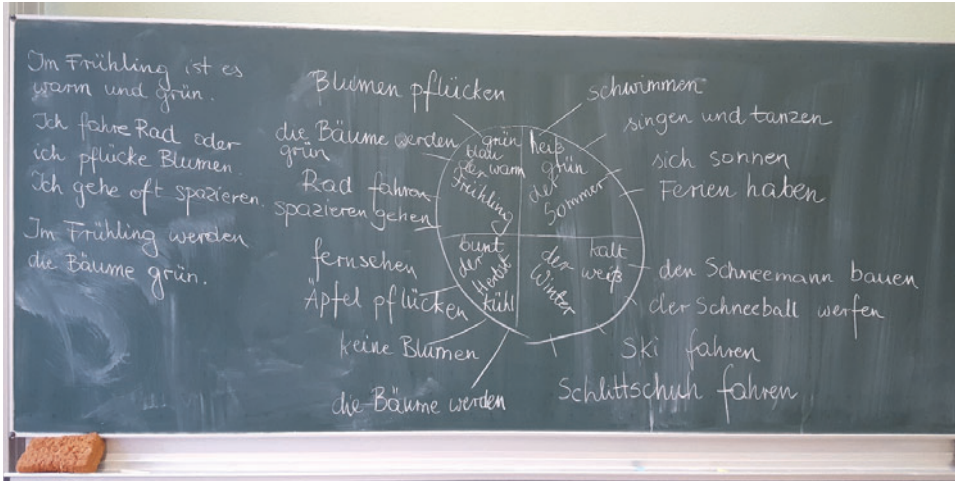 Im Frühling ist es
warm und grün.
Ich fahre Rad oder
ich pflücke Blumen.
Ich gehe oft spazieren.
Im Frühling werden
die Bäume grün.
Blumen pflücken
die Bäume werden
grün
Rad fahren
spazieren gehen
fernsehen
Äpfel pflücken
keine Blumen
die Bäume werden
grün
blau
der warm
Frühling
heiß
grün
der
Sommer
bunt
der
Herbst
kühl
kalt
der weiß
Winter
schwimmen
singen und tanzen
sich sonnen
Ferien haben
den Schneemann bauen
der Schneeball werfen
Ski fahren
Schlittschuh fahren